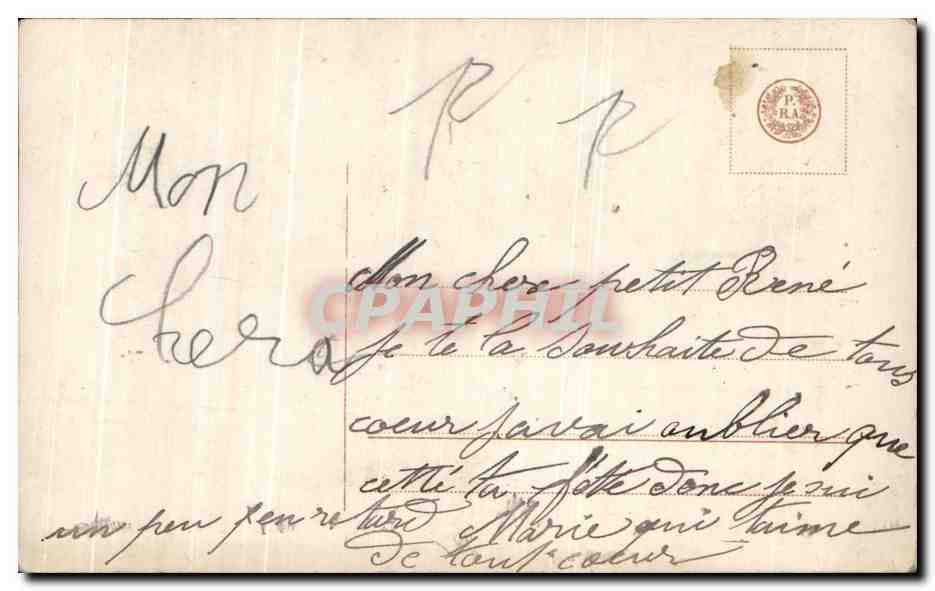 R R
P.
R.A.
Mon
chera
Mon chere petit René
je te la souhaite de tous
coeur javai oublier que
cetté ta fête donc je sui
un peu en retard Marie qui t'aime
de tout coeur
CPAPHIL